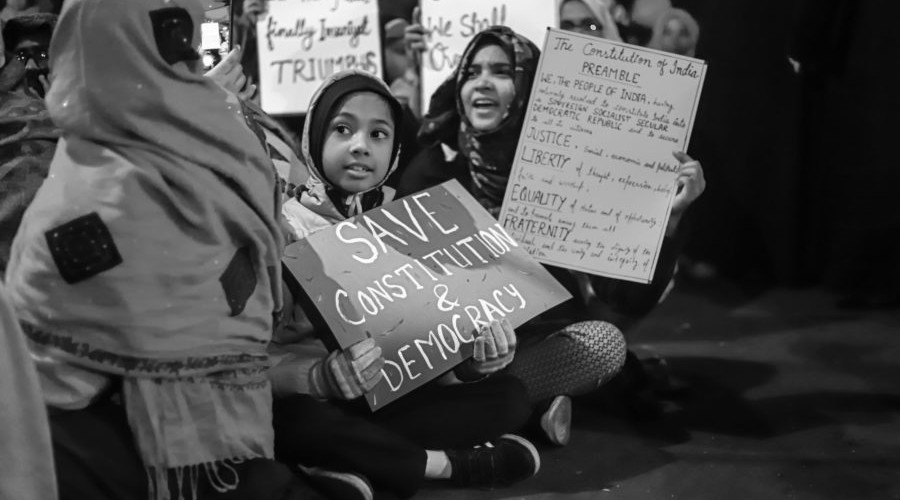 finally
TRIUMPHS
We Shall
SAVE
CONSTITUTION
&
DEMOCRACY
The Constitution of India
PREAMBLE
WE, THE PEOPLE OF INDIA, having
solemnly resolved to constitute India into
a SOVEREIGN SOCIALIST SECULAR
DEMOCRATIC REPUBLIC and to secure
to all its citizens
JUSTICE, Social, economic and political
LIBERTY of thought, expression, belief
faith and worship,
EQUALITY of status and of opportunity
and to promote among them all
FRATERNITY assuring the dignity of the
and the unity and integrity of